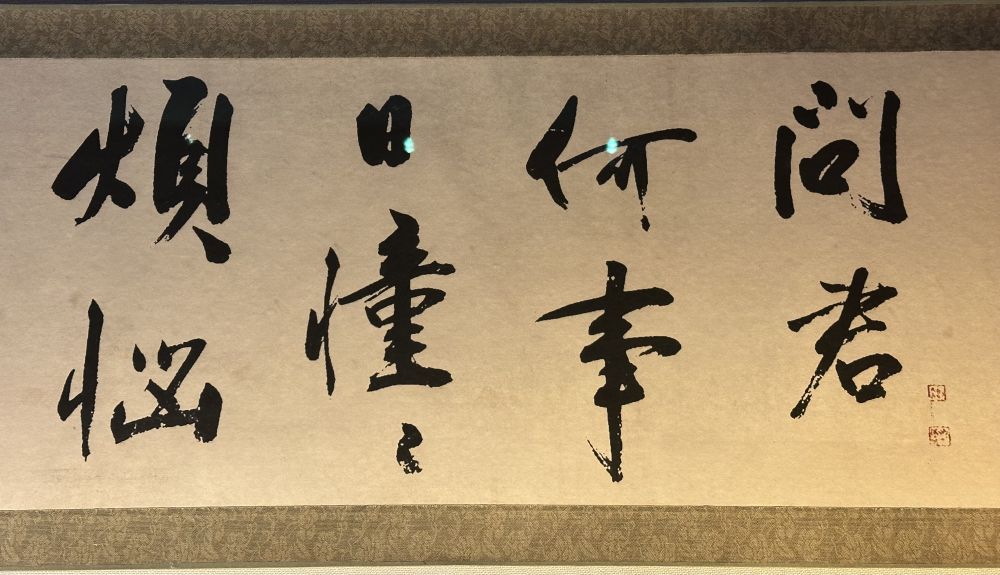 問君
何事
日憧々
煩惱